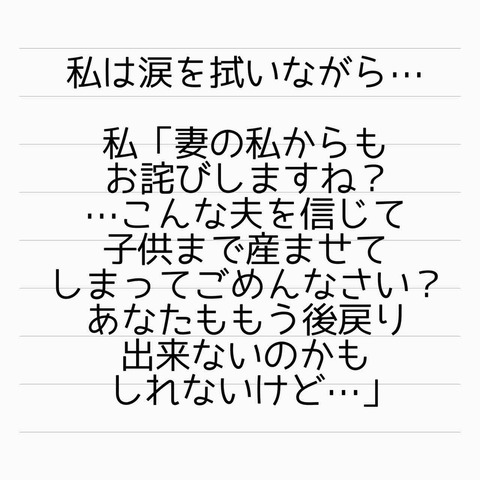 私は涙を拭いながら…
私「妻の私からも
お詫びしますね？
…こんな夫を信じて
子供まで産ませて
しまってごめんなさい？
あなたももう後戻り
出来ないのかも
しれないけど…」